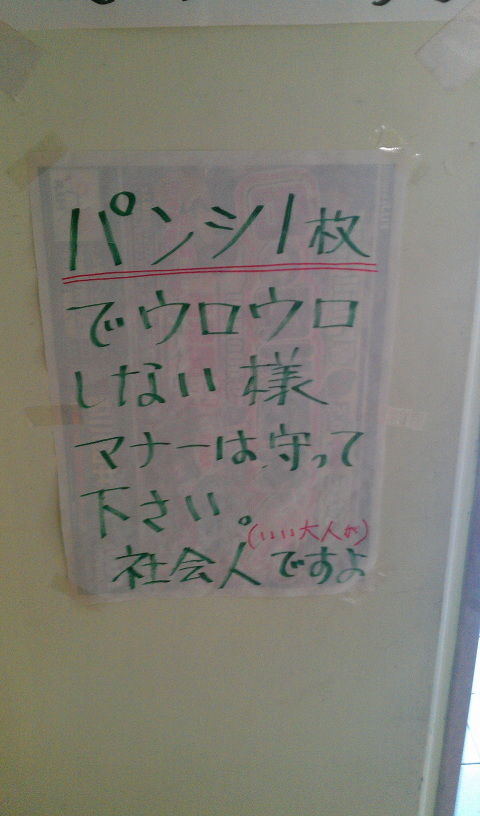 パンシ1枚
でウロウロ
しない様
マナーは守って
下さい。
(いい大人が)
社会人ですよ